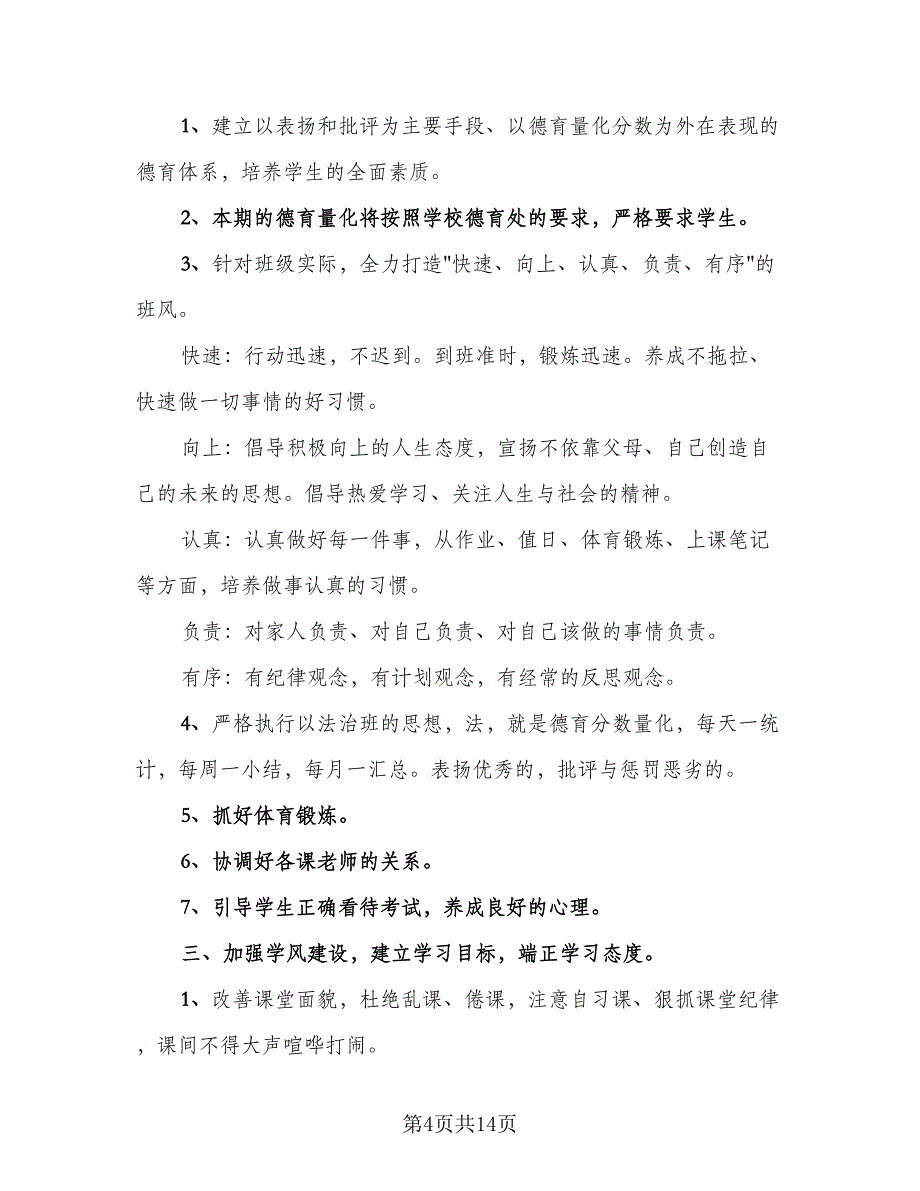 1、建立以表扬和批评为主要手段、以德育量化分数为外在表现的
德育体系，培养学生的全面素质。
2、本期的德育量化将按照学校德育处的要求，严格要求学生。
3、针对班级实际，全力打造"快速、向上、认真、负责、有序"的
班风。
快速：行动迅速，不迟到。到班准时，锻炼迅速。养成不拖拉、
快速做一切事情的好习惯。
向上：倡导积极向上的人生态度，宣扬不依靠父母、自己创造自
己的未来的思想。倡导热爱学习、关注人生与社会的精神。
认真：认真做好每一件事，从作业、值日、体育锻炼、上课笔记
等方面，培养做事认真的习惯。
负责：对家人负责、对自己负责、对自己该做的事情负责。
有序：有纪律观念，有计划观念，有经常的反思观念。
4、严格执行以法治班的思想，法，就是德育分数量化，每天一统
计，每周一小结，每月一汇总。表扬优秀的，批评与惩罚恶劣的。
5、抓好体育锻炼。
6、协调好各课老师的关系。
7、引导学生正确看待考试，养成良好的心理。
三、加强学风建设，建立学习目标，端正学习态度。
1、改善课堂面貌，杜绝乱课、倦课，注意自习课、狠抓课堂纪律
，课间不得大声喧哗打闹。
第4页共14页